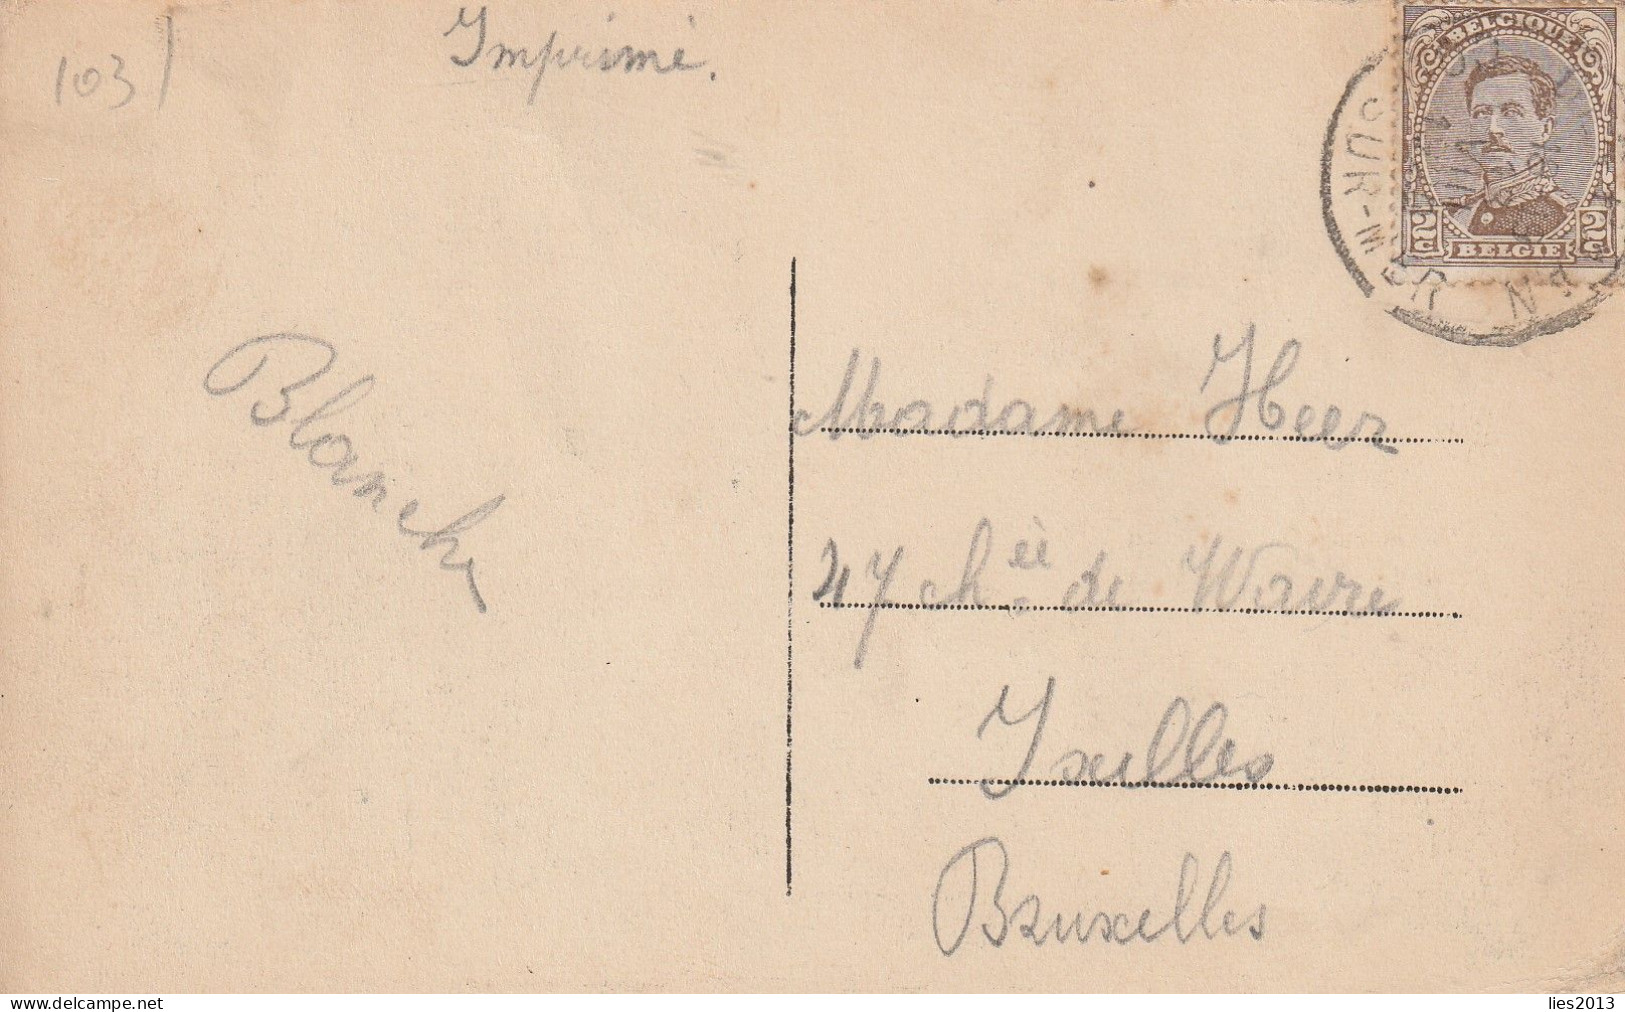 103
Imprimé.
BELGIQUE
2c 2c
BELGIE
SUR-MER
Blanche
Madame Heer
47 ch.ée de Wavre
Ixelles
Bruxelles
www.delcampe.net
lies2013